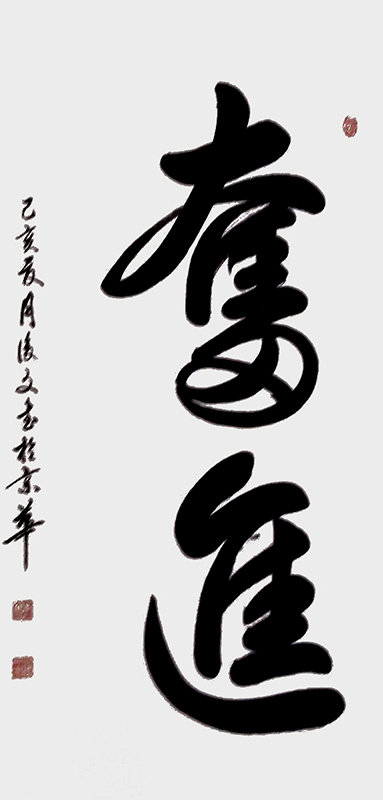 奮進
己亥夏月后文書於京華